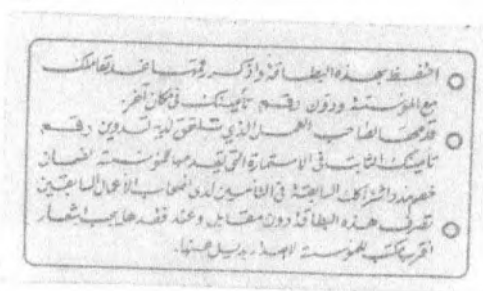 احتفظ بهذه البطاقة واذكر رقمها عند تعاملك
مع المؤسسة ودوّن رقم تأمينك في مكان آخر.
قدمها لصاحب العمل الذي تلتحق لديه لتدوين رقم
تأمينك الثابت في الاستمارة التي يقدمها للمؤسسة لضمان
اشتراكك السابقة في التأمين لدى أصحاب الأعمال السابقين
تصرف هذه البطاقة دون مقابل وعند فقدها يجب إشعار
أقرب مكتب للمؤسسة لإصدار بديل عنها.